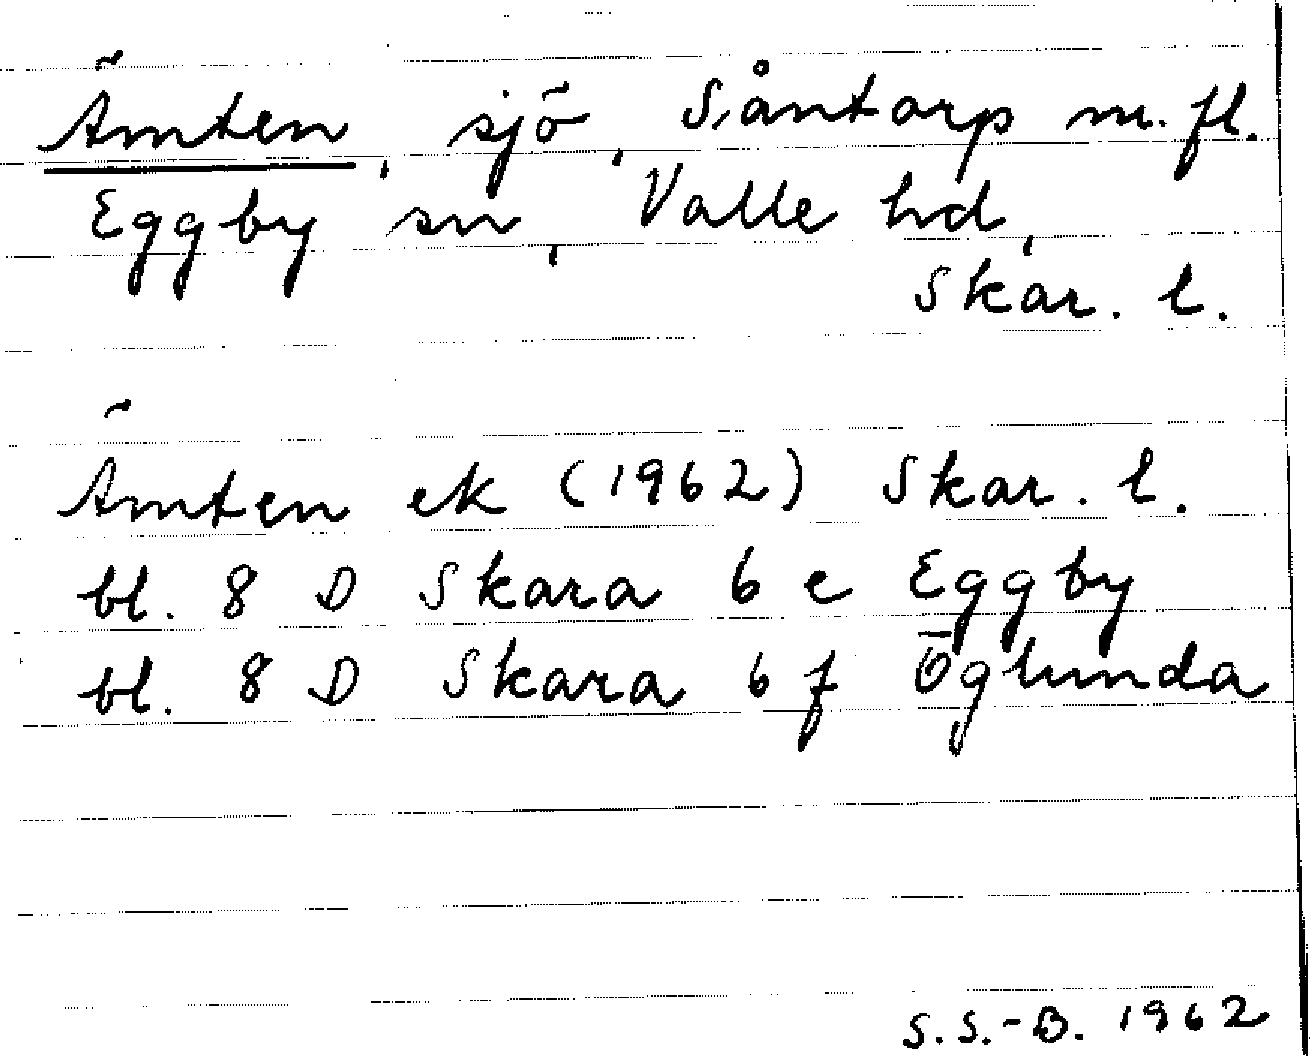 Ämten, sjö, Såntorp m. fl.
Eggby sn, Valle hd,
Skar. l.
Ämten ek (1962) Skar. l.
bl. 8 D Skara 6 e Eggby
bl. 8 D Skara 6 f Öglunda
S. S.-B. 1962